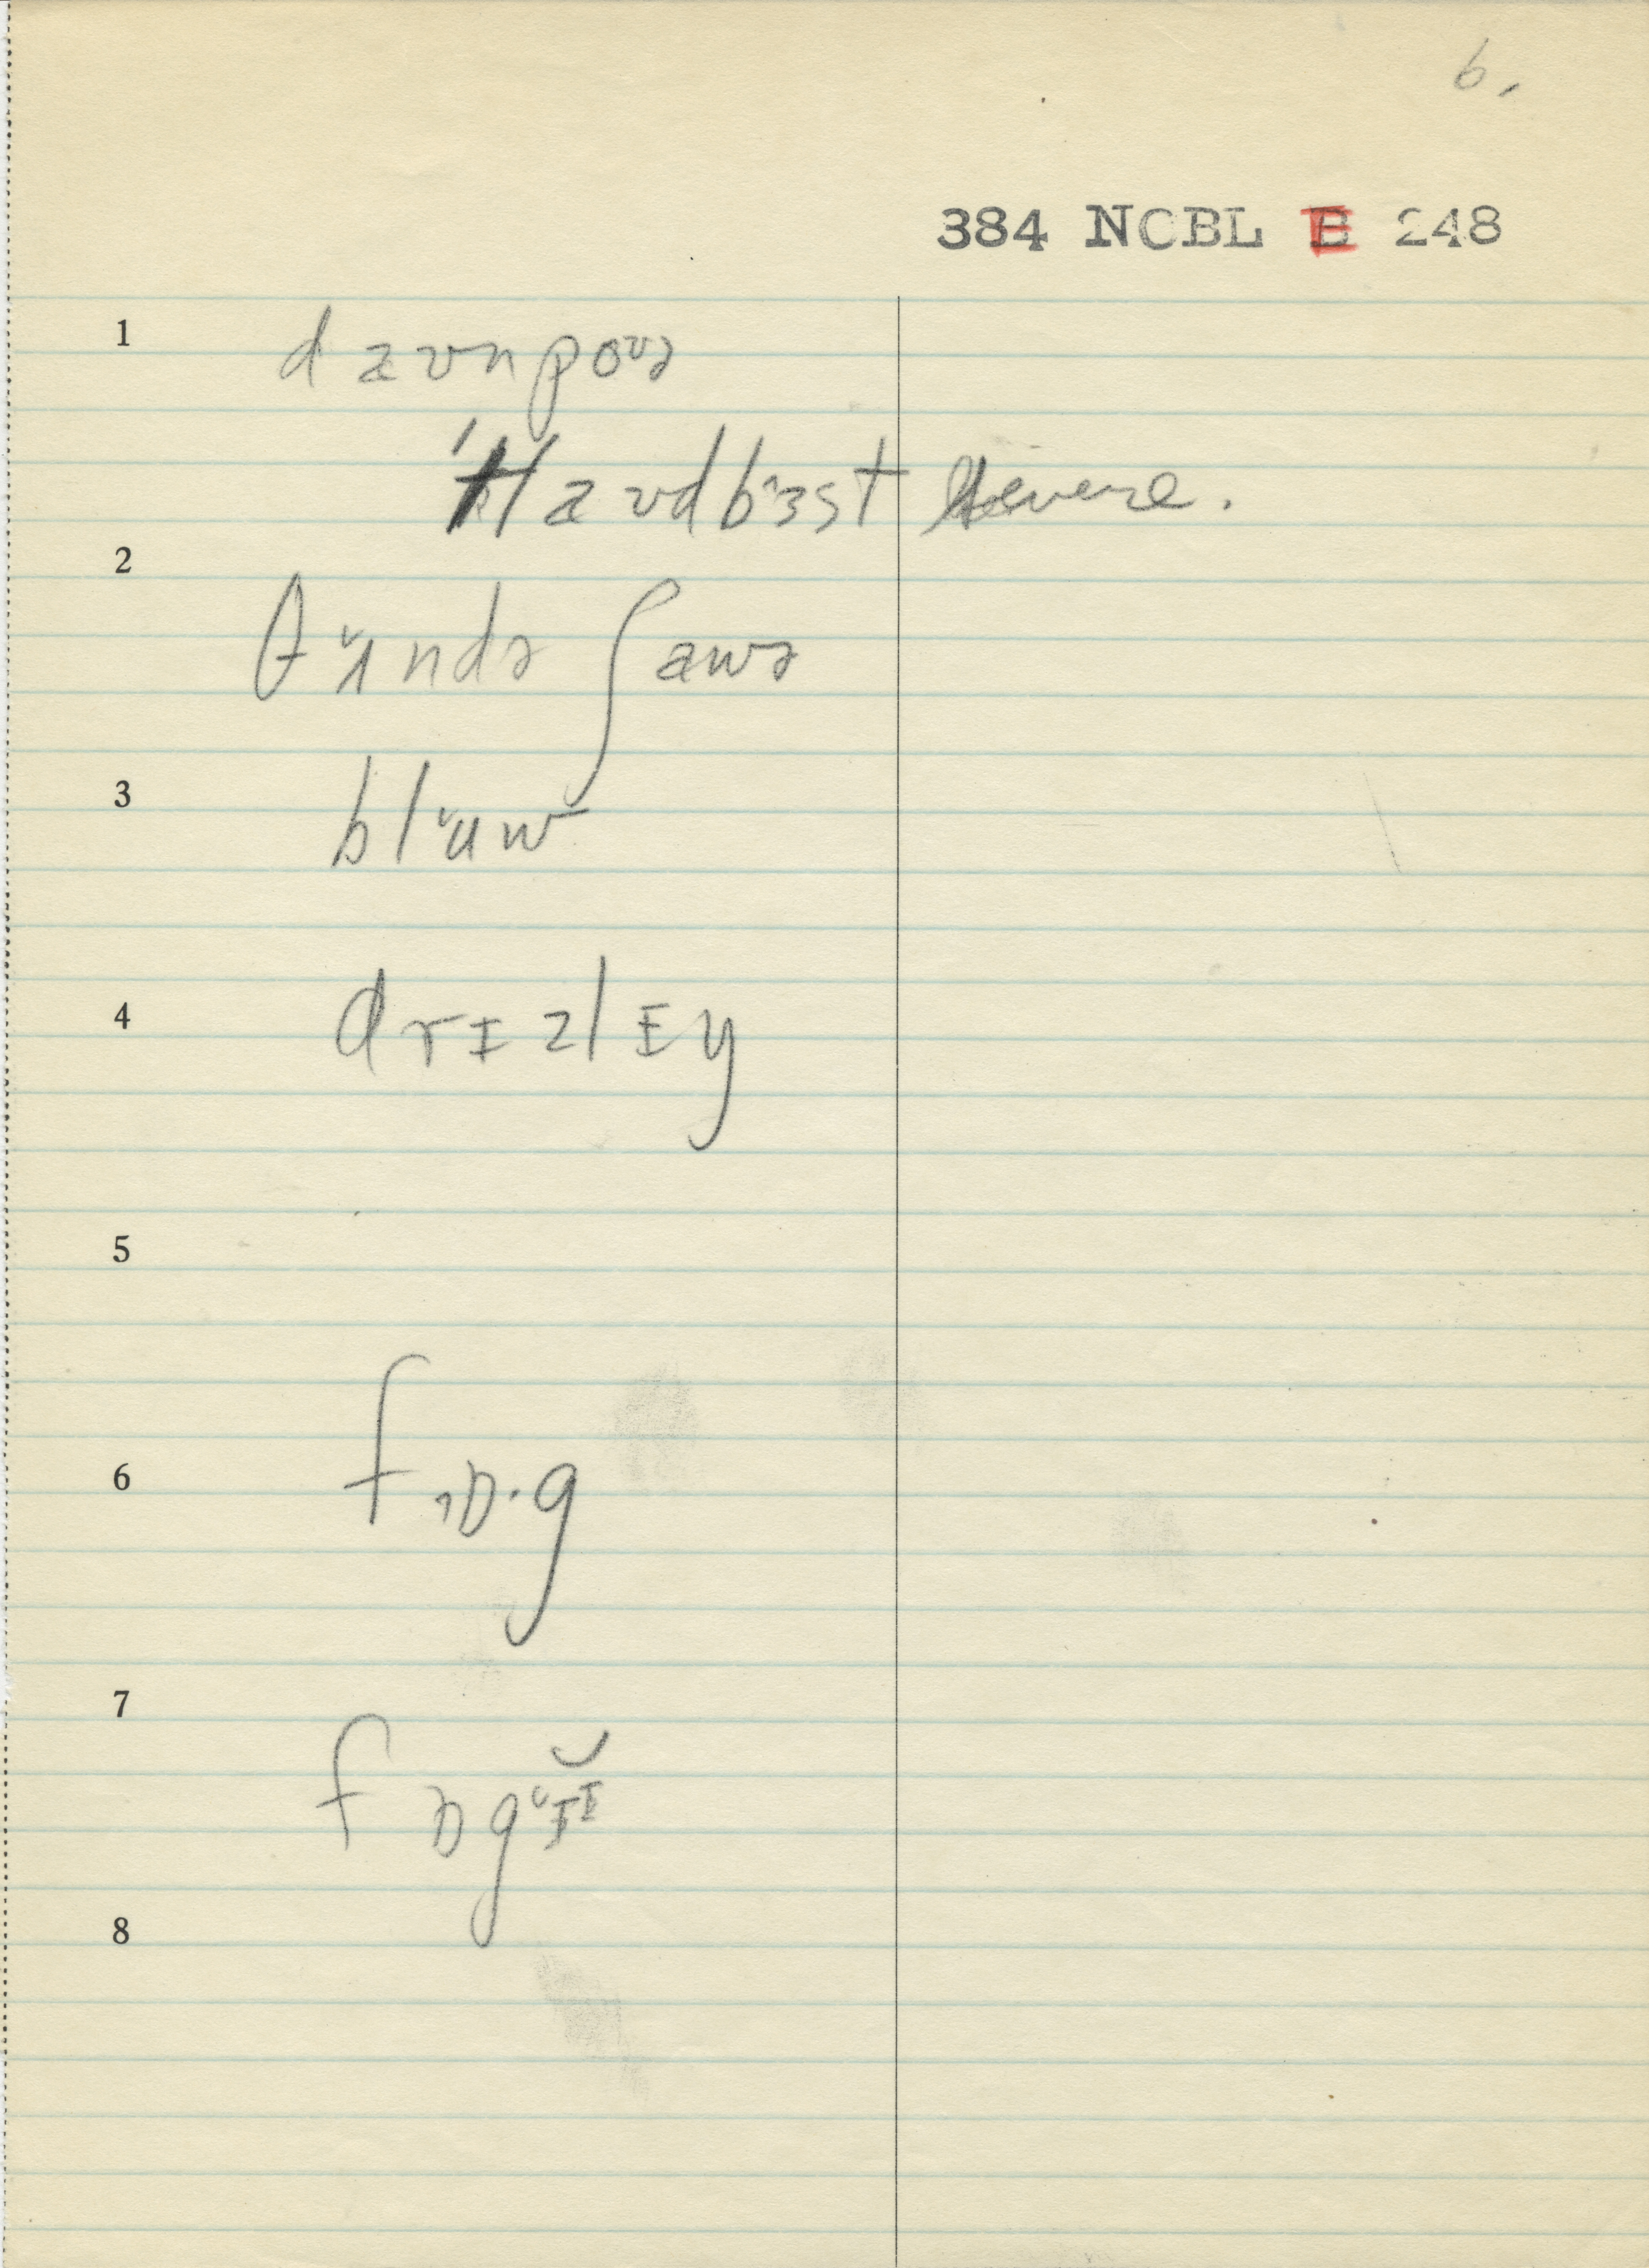 6.
384 NCBL E 248
1
daʊnpoʊə
'klaʊdbɜst severe.
2
θʌ̆ndə ʃaʊwə
3
blʌ̆w
4
drɪzlɪy
5
6
fɒ·g
7
fɒgɪ̆ɪ
8